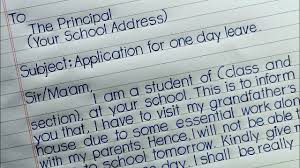 To
The Principal
(Your School Address)
Subject: Application for one day leave.
Sir/Ma'am,
I am a student of (class and
section), at your school. This is to inform
you that, I have to visit my grandfather's
house due to some essential work alon
with my parents. Hence, I will not be able
to school tomorrow. Kindly give m
one day. I shall be really